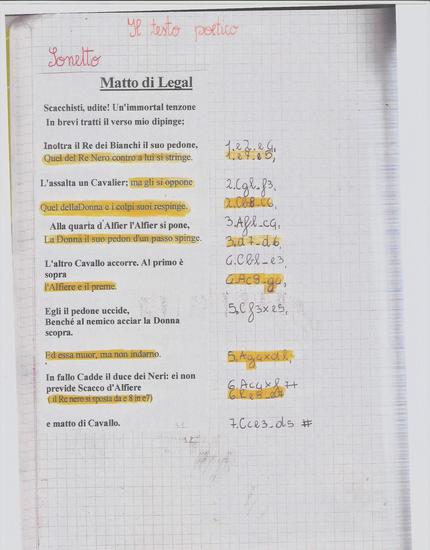 Il testo poetico
Sonetto
Matto di Legal
Scacchisti, udite! Un'immortal tenzone
In brevi tratti il verso mio dipinge;
Inoltra il Re dei Bianchi il suo pedone, 1. e2-e4,
Quel del Re Nero contro a lui si stringe. 1. e7-e5,
L'assalta un Cavalier; ma gli si oppone 2. Cg1-f3,
Quel dellaDonna e i colpi suoi respinge. 2. Cb8-c6,
Alla quarta d'Alfier l'Alfier si pone, 3. Af1-c4,
La Donna il suo pedon d'un passo spinge. 3. d7-d6,
L'altro Cavallo accorre. Al primo è 4. Cb1-c3,
sopra
l'Alfiere e il preme. 4. Ac8-g4,
Egli il pedone uccide, 5. Cf3xe5,
Benché al nemico acciar la Donna
scopra.
Ed essa muor, ma non indarno. 5. Ag4xd1,
In fallo Cadde il duce dei Neri: ei non
previde Scacco d'Alfiere 6. Ac4xf7+
( il Re nero si sposta da e 8 in e7) 6. Re8-
e matto di Cavallo. 7. Cc3-d5 #